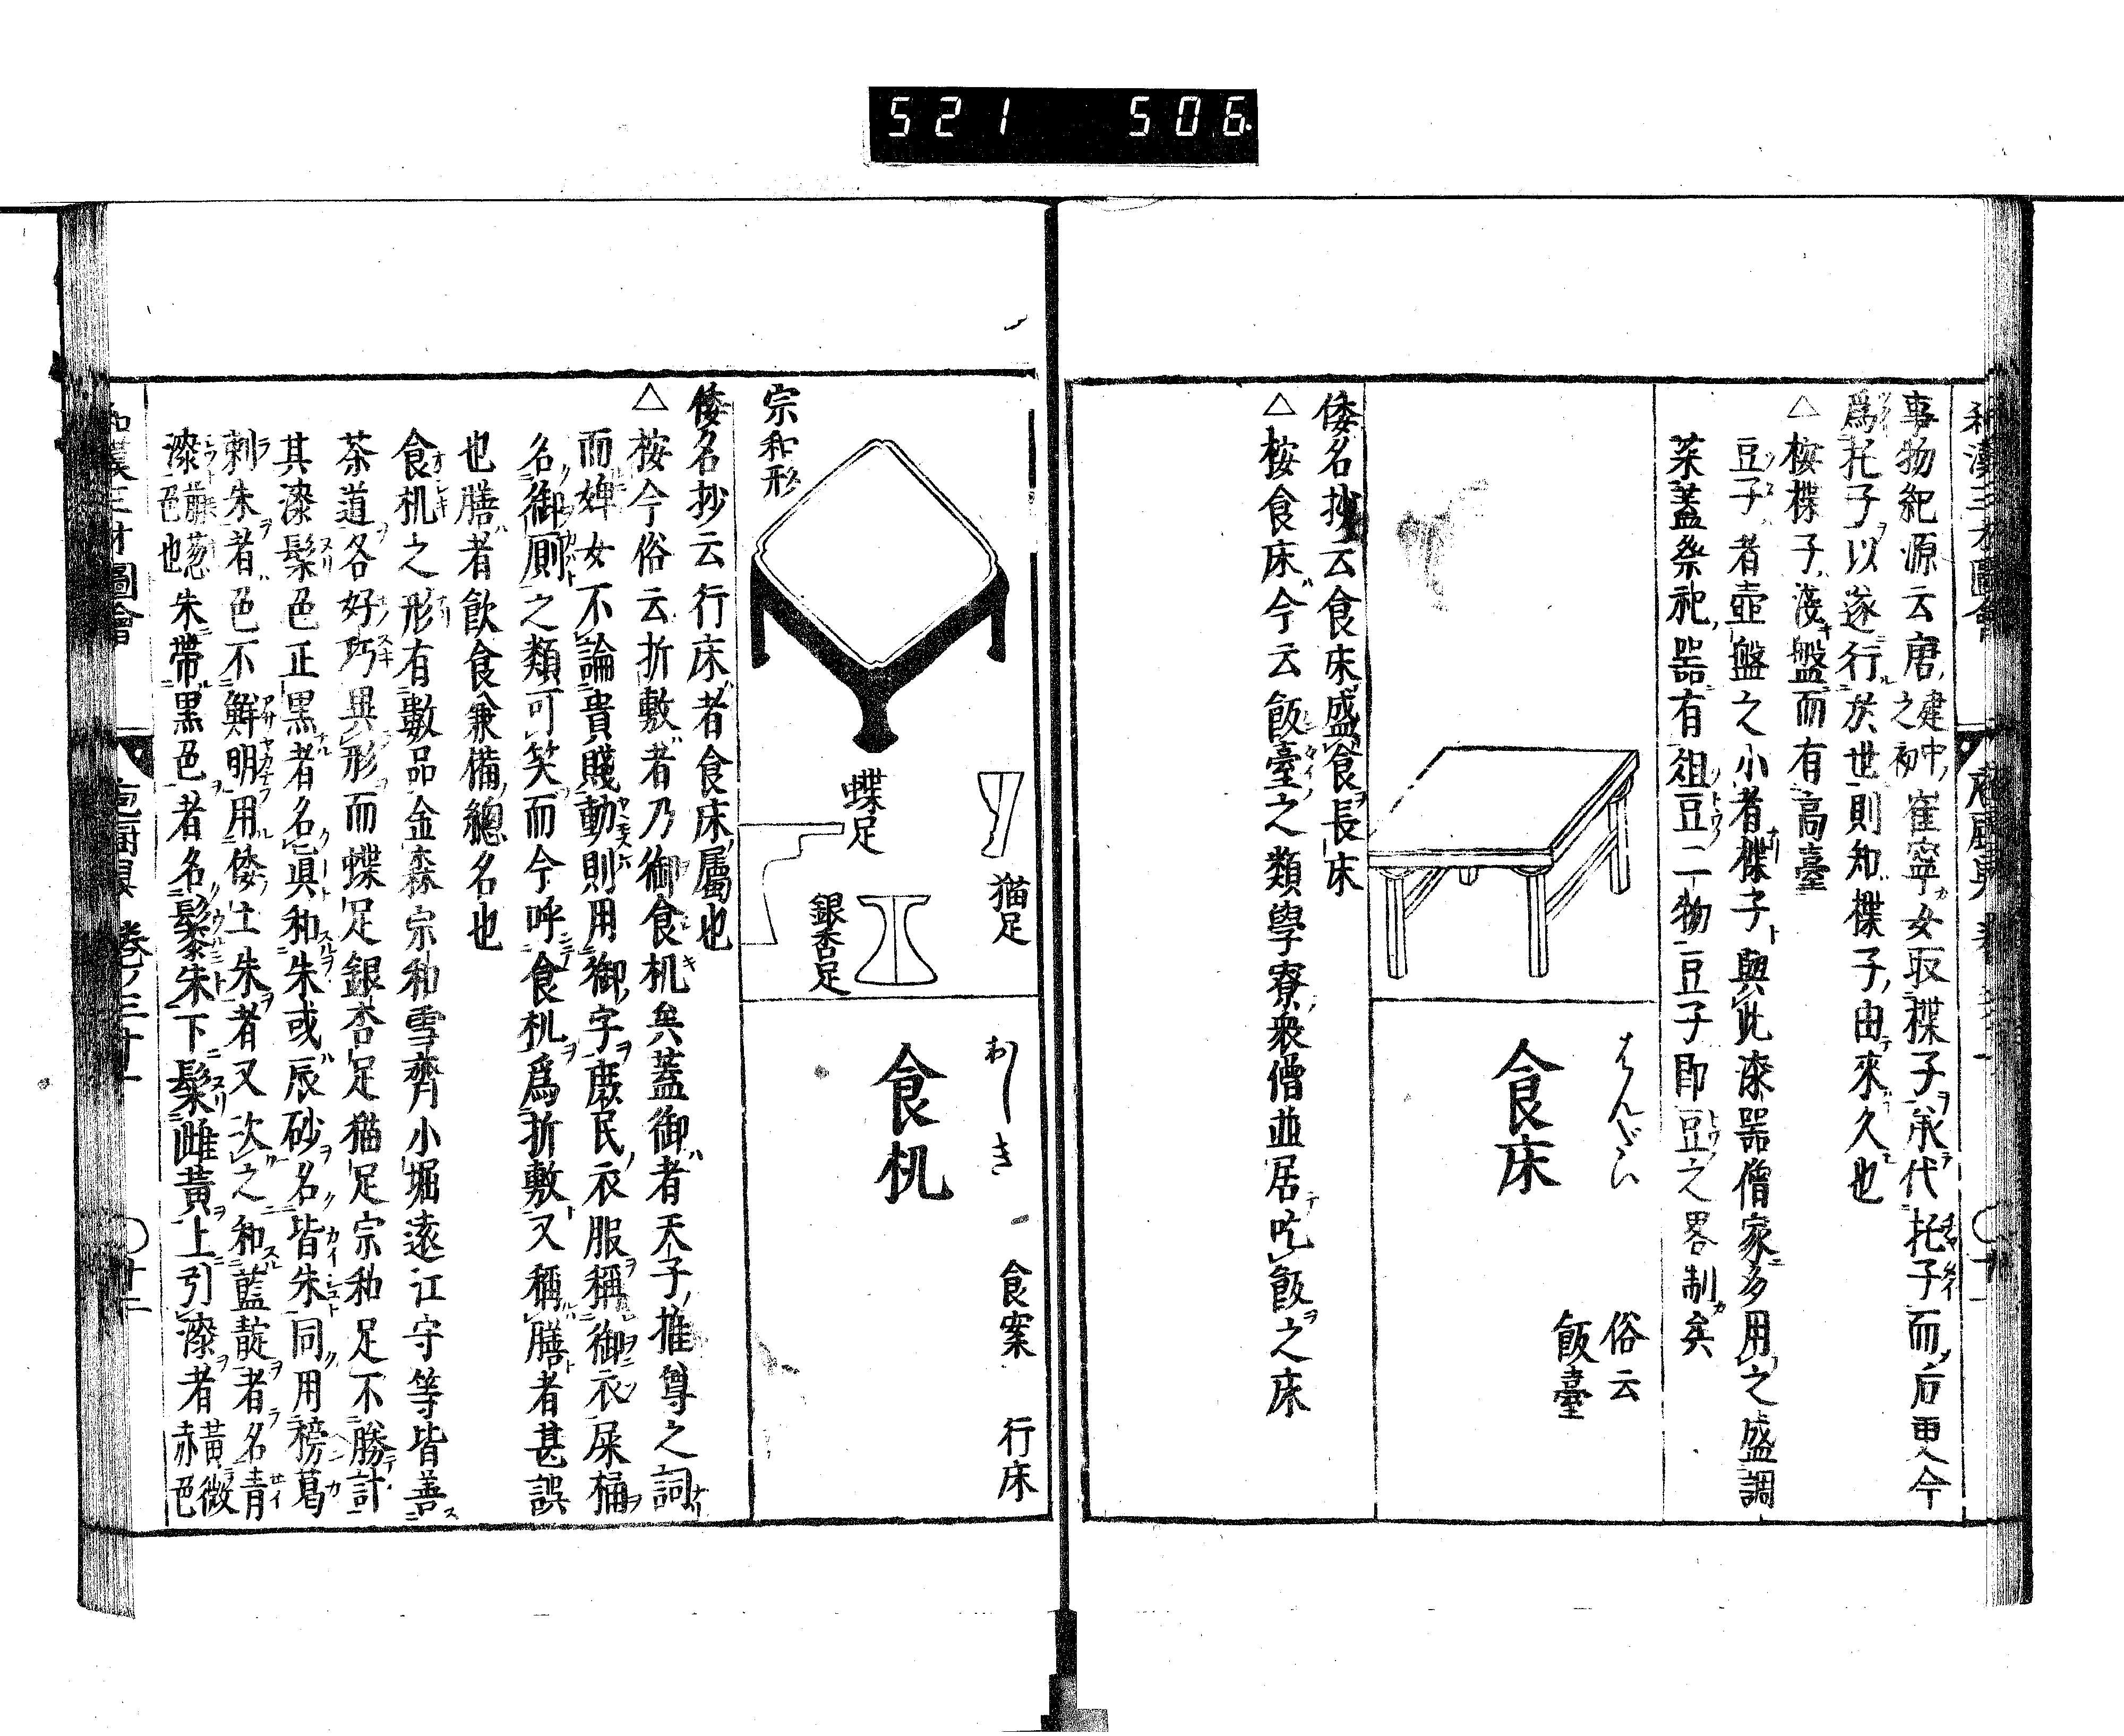 521 506
和漢三才圖會
事物紀源云唐建中之初崔寧女取楪子承代托子而后更今
爲托子以遂行於世則知楪子由來久也
△桉楪子淺盤而有高臺
豆子者壺盤之小者楪子與此漆器僧家多用之盛調
菜蓋祭祀器有俎豆二物豆子即豆之畧制矣
はんだい
食床
俗云
飯臺
倭名抄云食床盛食長床
△桉食床今云飯臺之類學寮衆僧並居吃飯之床
おしき
食机
食案 行床
宗和形
猫足
蝶足
銀杏足
倭名抄云行床者食床屬也
△桉今俗云折敷者乃御食机矣蓋御者天子推尊之詞
而婢女不論貴賤動則用御字庶民衣服稱御衣屎桶
名御厠之類可笑而今呼食机爲折敷又稱膳者甚誤
也膳者飲食兼備總名也
食机之形有數品金森宗和雪齊小堀遠江守等皆善
茶道各好巧異形而蝶足銀杏足猫足宗和足不勝計
其漆髹色正黑者名眞和朱或辰砂名皆朱同用榜葛
剌朱者色不鮮明用倭土朱者又次之和藍靛者名青
漆葱色也朱帶黑色者名髹朱下髹雌黃上引漆者黃微赤色
和漢三才圖會
庖厨具 卷ノ三十一
〇廿二